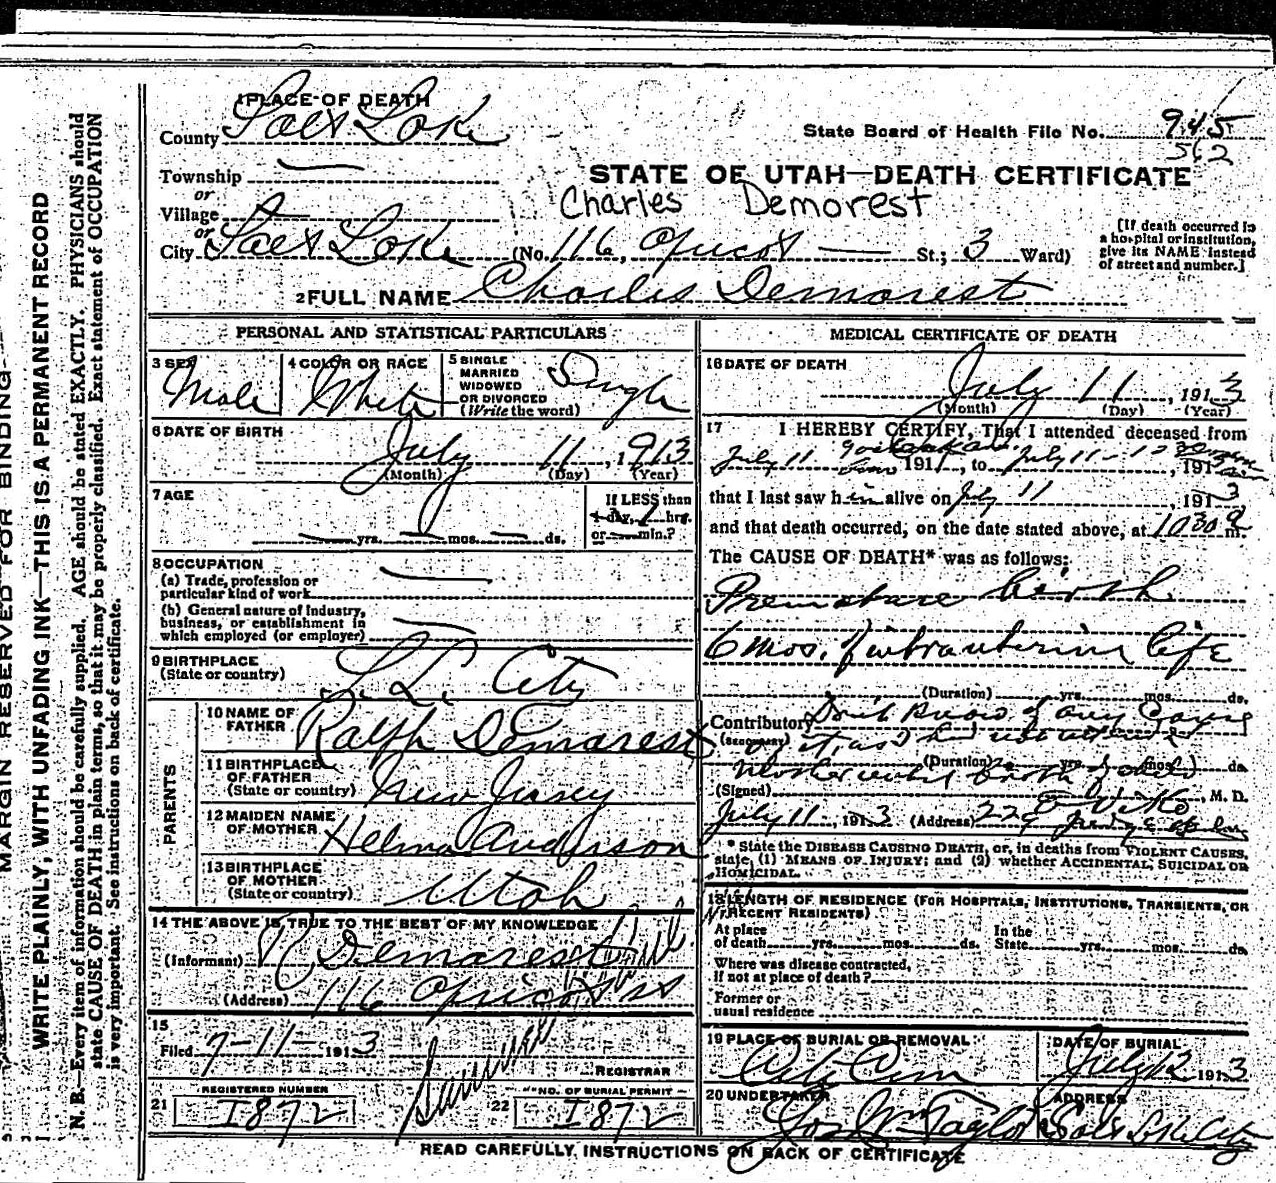 1 PLACE OF DEATH
County Salt Lake
State Board of Health File No. 945
562
Township —
or
STATE OF UTAH—DEATH CERTIFICATE
Charles Demorest
Village —
or
City Salt Lake (No. 116, Apricot — St.; 3 Ward)
[If death occurred in
a hospital or institution,
give its NAME instead
of street and number.]
2 FULL NAME Charles Demorest
PERSONAL AND STATISTICAL PARTICULARS
3 SEX Male
4 COLOR OR RACE White
5 SINGLE
MARRIED
WIDOWED
OR DIVORCED
(Write the word) Single
6 DATE OF BIRTH
July 11, 1913
(Month) (Day) (Year)
7 AGE
— yrs. — mos. — ds.
If LESS than
1 day, 1 hrs.
or — min.?
8 OCCUPATION
(a) Trade, profession or
particular kind of work —
(b) General nature of industry,
business, or establishment in
which employed (or employer) —
9 BIRTHPLACE
(State or country) S. L. City
PARENTS
10 NAME OF
FATHER Ralph Demarest
11 BIRTHPLACE
OF FATHER
(State or country) New Jersey
12 MAIDEN NAME
OF MOTHER Helma Anderson
13 BIRTHPLACE
OF MOTHER
(State or country) Utah
14 THE ABOVE IS TRUE TO THE BEST OF MY KNOWLEDGE
(Informant) R Demarest
(Address) 116 Apricot St
15
Filed 7-11- 1913
REGISTRAR
REGISTERED NUMBER
21 1872
NO. OF BURIAL PERMIT
22 1872
MEDICAL CERTIFICATE OF DEATH
16 DATE OF DEATH
July 11, 1913
(Month) (Day) (Year)
17 I HEREBY CERTIFY, That I attended deceased from
July 11 191, to July 11- 191
that I last saw him alive on July 11, 1913
and that death occurred, on the date stated above, at 1030 a m.
The CAUSE OF DEATH* was as follows:
Premature birth
6 mos. of intrauterine life
(Duration) yrs. mos. ds.
Contributory Don't know of any cause
(Secondary) of it, as I had not attended
(Duration) mos. ds.
Mother until birth of child
(Signed) M. D.
July 11, 1913 (Address) 229 Judge
* State the DISEASE CAUSING DEATH, or, in deaths from VIOLENT CAUSES,
state (1) MEANS OF INJURY; and (2) whether ACCIDENTAL, SUICIDAL OR
HOMICIDAL.
18 LENGTH OF RESIDENCE (FOR HOSPITALS, INSTITUTIONS, TRANSIENTS, OR
RECENT RESIDENTS)
At place
of death yrs. mos. ds. In the
State yrs. mos. ds.
Where was disease contracted,
if not at place of death?
Former or
usual residence
19 PLACE OF BURIAL OR REMOVAL
City Cem
DATE OF BURIAL
July 12 1913
20 UNDERTAKER
Jos. Wm Taylor
ADDRESS
Salt Lake City
READ CAREFULLY INSTRUCTIONS ON BACK OF CERTIFICATE
MARGIN RESERVED FOR BINDING
WRITE PLAINLY, WITH UNFADING INK—THIS IS A PERMANENT RECORD
N. B.—Every item of information should be carefully supplied. AGE should be stated EXACTLY. PHYSICIANS should
state CAUSE OF DEATH in plain terms, so that it may be properly classified. Exact statement of OCCUPATION
is very important. See instructions on back of certificate.